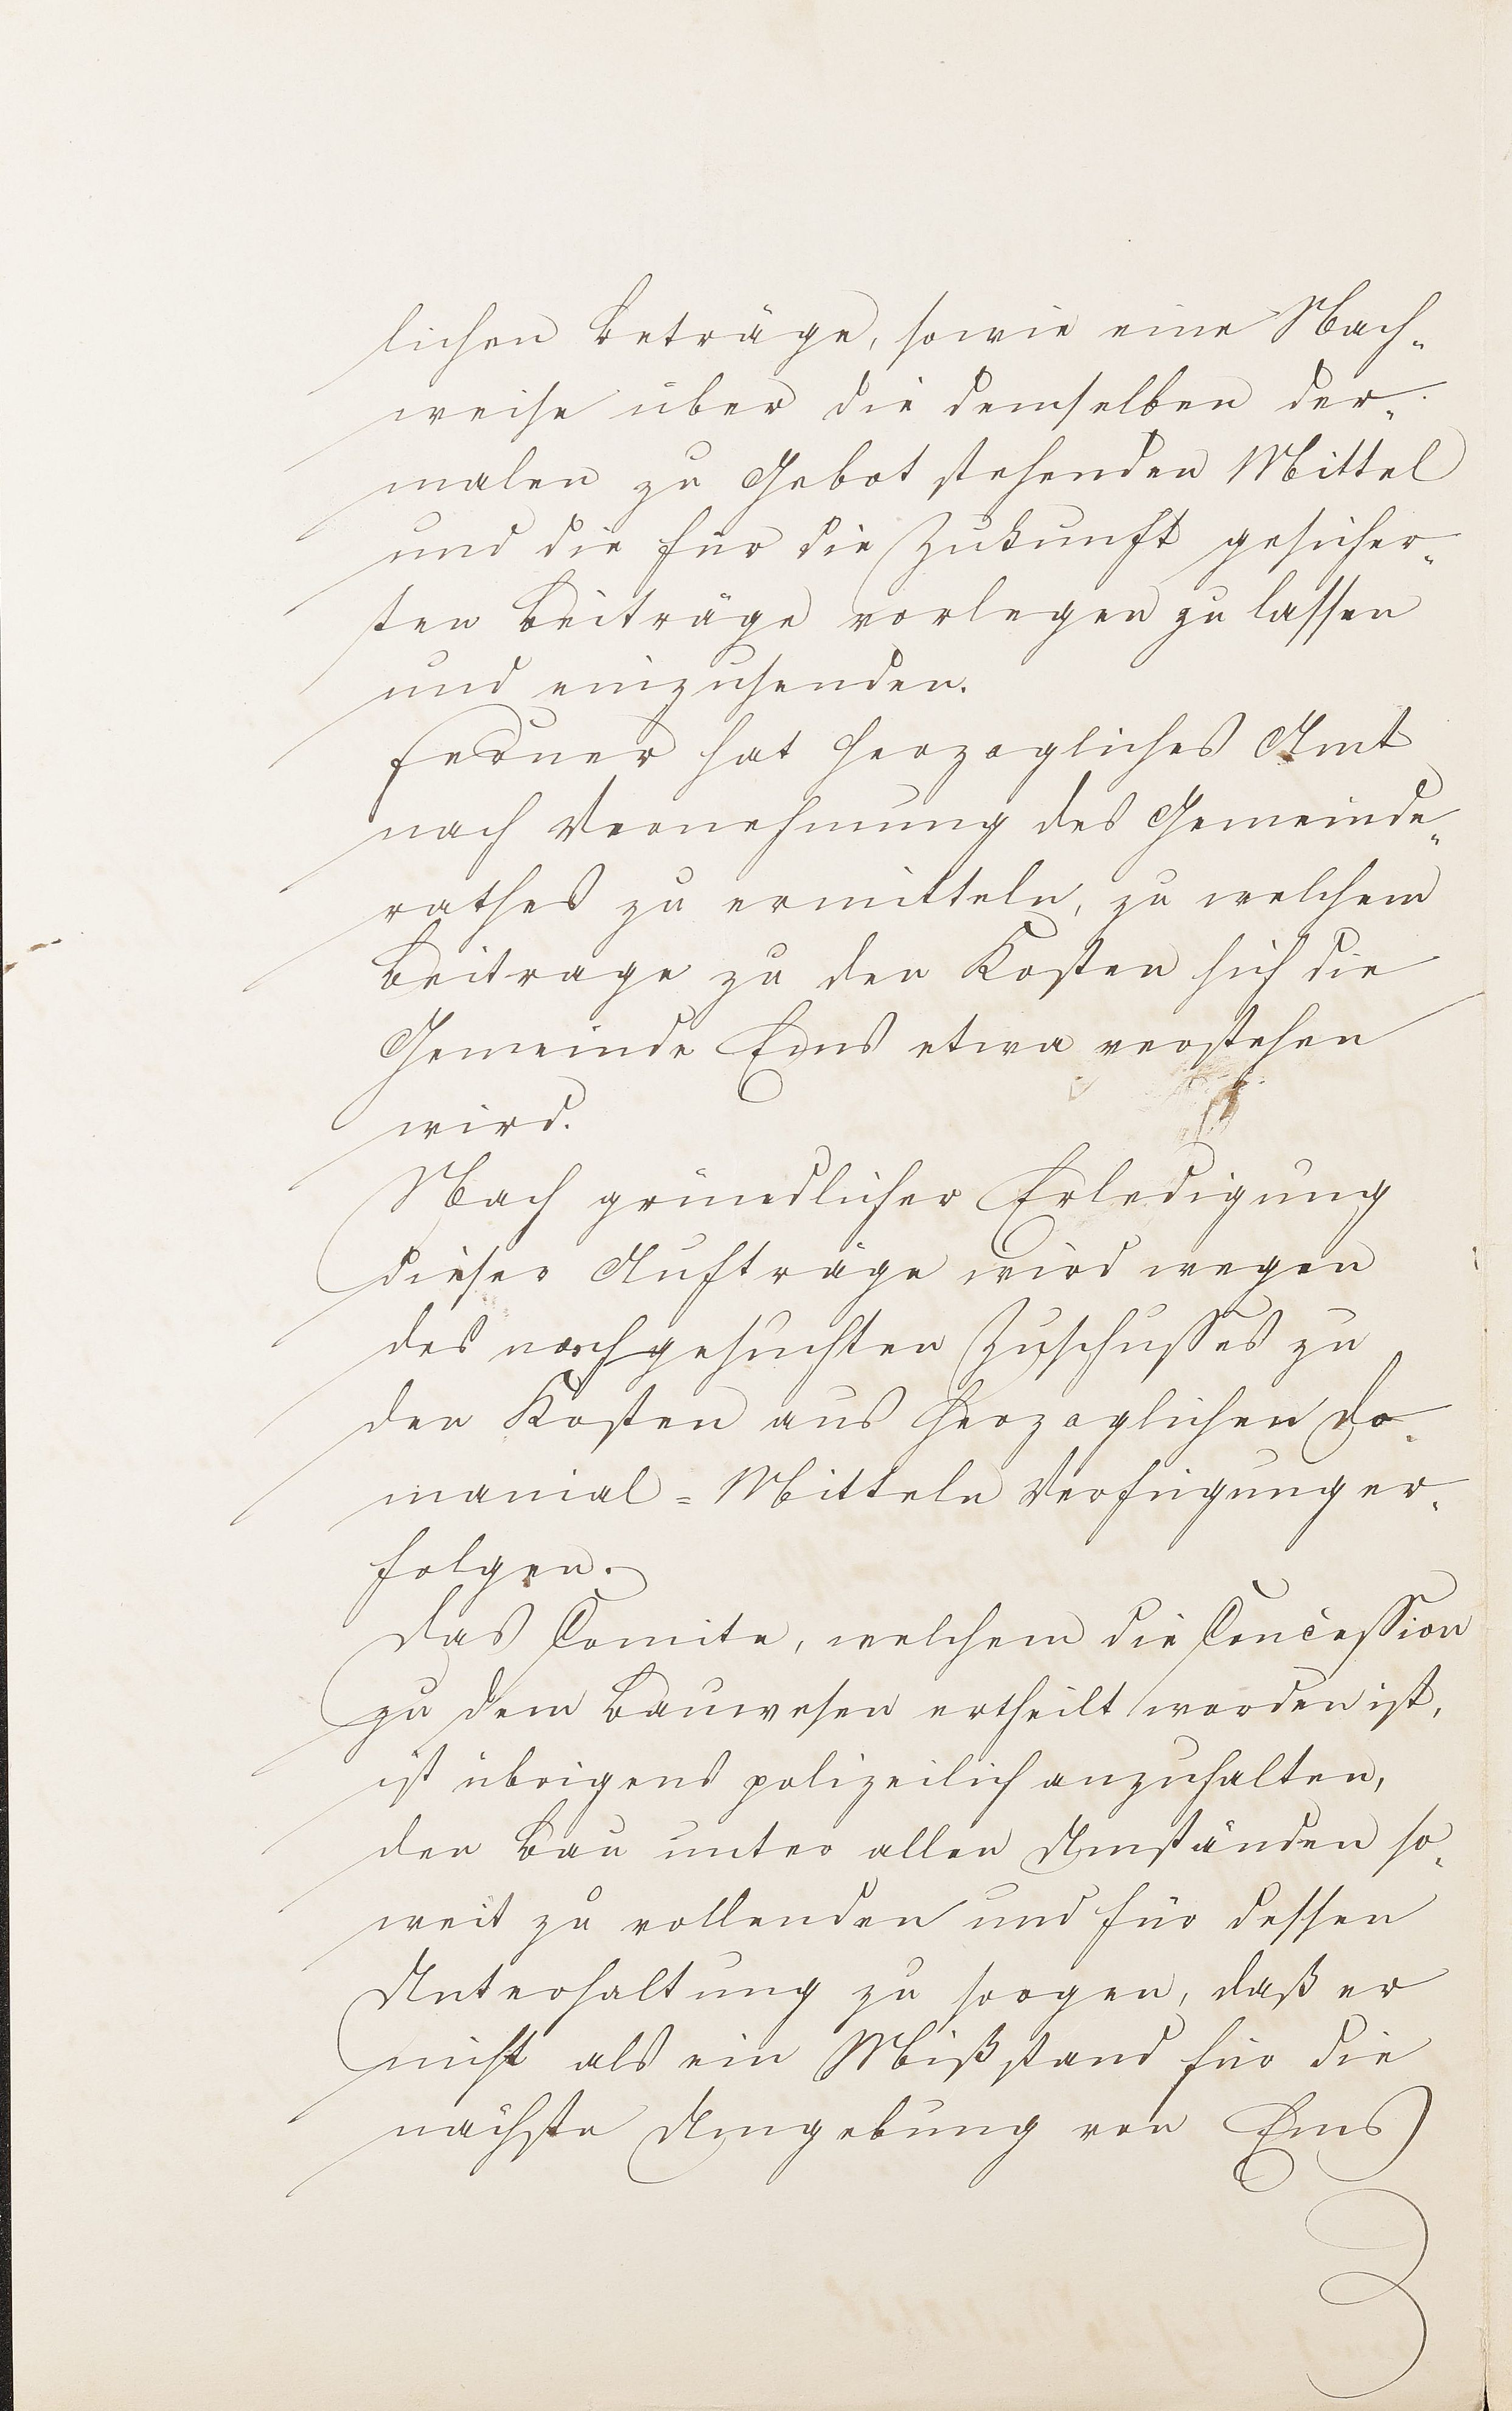 lichen Beträge, sowie eine Nach-
weise über die demselben der-
malen zu Gebot stehenden Mittel
und die für die Zukunft gesicher-
ten Beiträge vorlegen zu lassen
und einzusenden.
Ferner hat Herzogliches Amt
nach Vernehmung des Gemeinde-
rathes zu ermitteln, zu welchem
Beitrage zu den Kosten sich die
Gemeinde Ems etwa verstehen
wird.
Nach gründlicher Erledigung
dieser Aufträge wird wegen
des nachgesuchten Zuschusses zu
den Kosten aus Herzoglichen Do-
manial=Mitteln Verfügung er-
folgen.
Das Comite, welchem die Concession
zu dem Bauwesen ertheilt worden ist,
ist übrigens polizeilich anzuhalten,
den Bau unter allen Umständen so-
weit zu vollenden und für dessen
Unterhaltung zu sorgen, daß er
nicht als ein Mißstand für die
nächste Umgebung von Ems